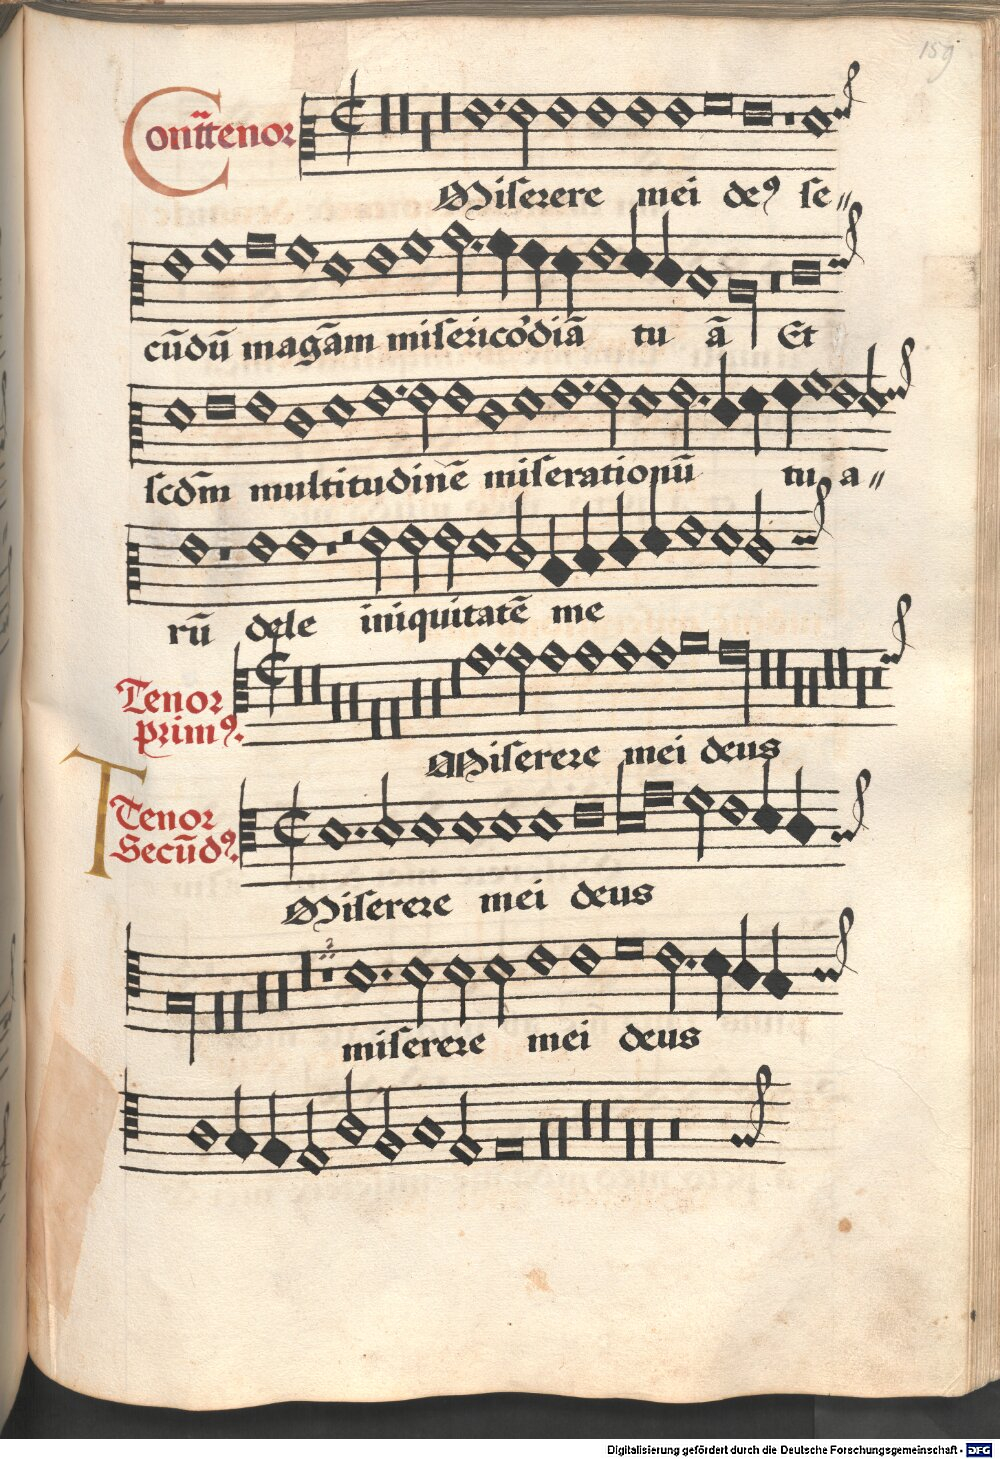 159
Contratenor
Miserere mei deꝰ se〃
cūdū magām misericoʼdiā tu ā Et
scdm̄ multitudinē miserationū tu a〃
rū dele iniquitatē me
Tenor
primꝰ.
Miserere mei deus
Tenor
Secūdꝰ.
Miserere mei deus
miserere mei deus
Digitalisierung gefördert durch die Deutsche Forschungsgemeinschaft - DFG